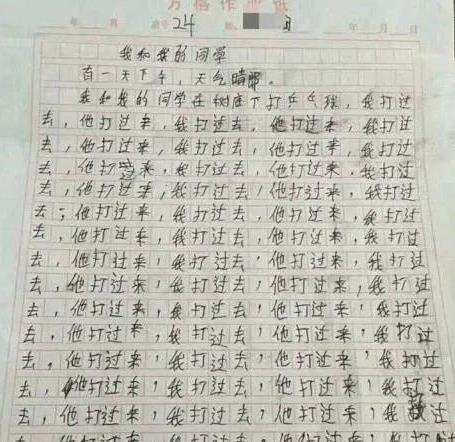 年 月 24 日 年 月 日
我和我的同学
一天下午，天气晴
我和我的同学在树底下打乒乓球，我打过
去，他打过来，我打过去，他打过来，我打过
去，他打过来，我打过去，他打过来，我打过
去，他打过来，我打过去，他打过来，我打过
去，他打过来，我打过去，他打过来，我打过
去，他打过来，我打过去，他打过来，我打过
去，他打过来，我打过去，他打过来，我打过
去，他打过来，我打过去，他打过来，我打过
去，他打过来，我打过去，他打过来，我打过
去，他打过来，我打过去，他打过来，我打过
去，他打过来，我打过去，他打过来，我打过
去，他打过来，我打过去，他打过来，我打过
去，他打过来，我打过去，他打过来，我打过
去，他打过来，我打过去，他打过来，我打过
去，他打过来，我打过去，他打过来，我打过